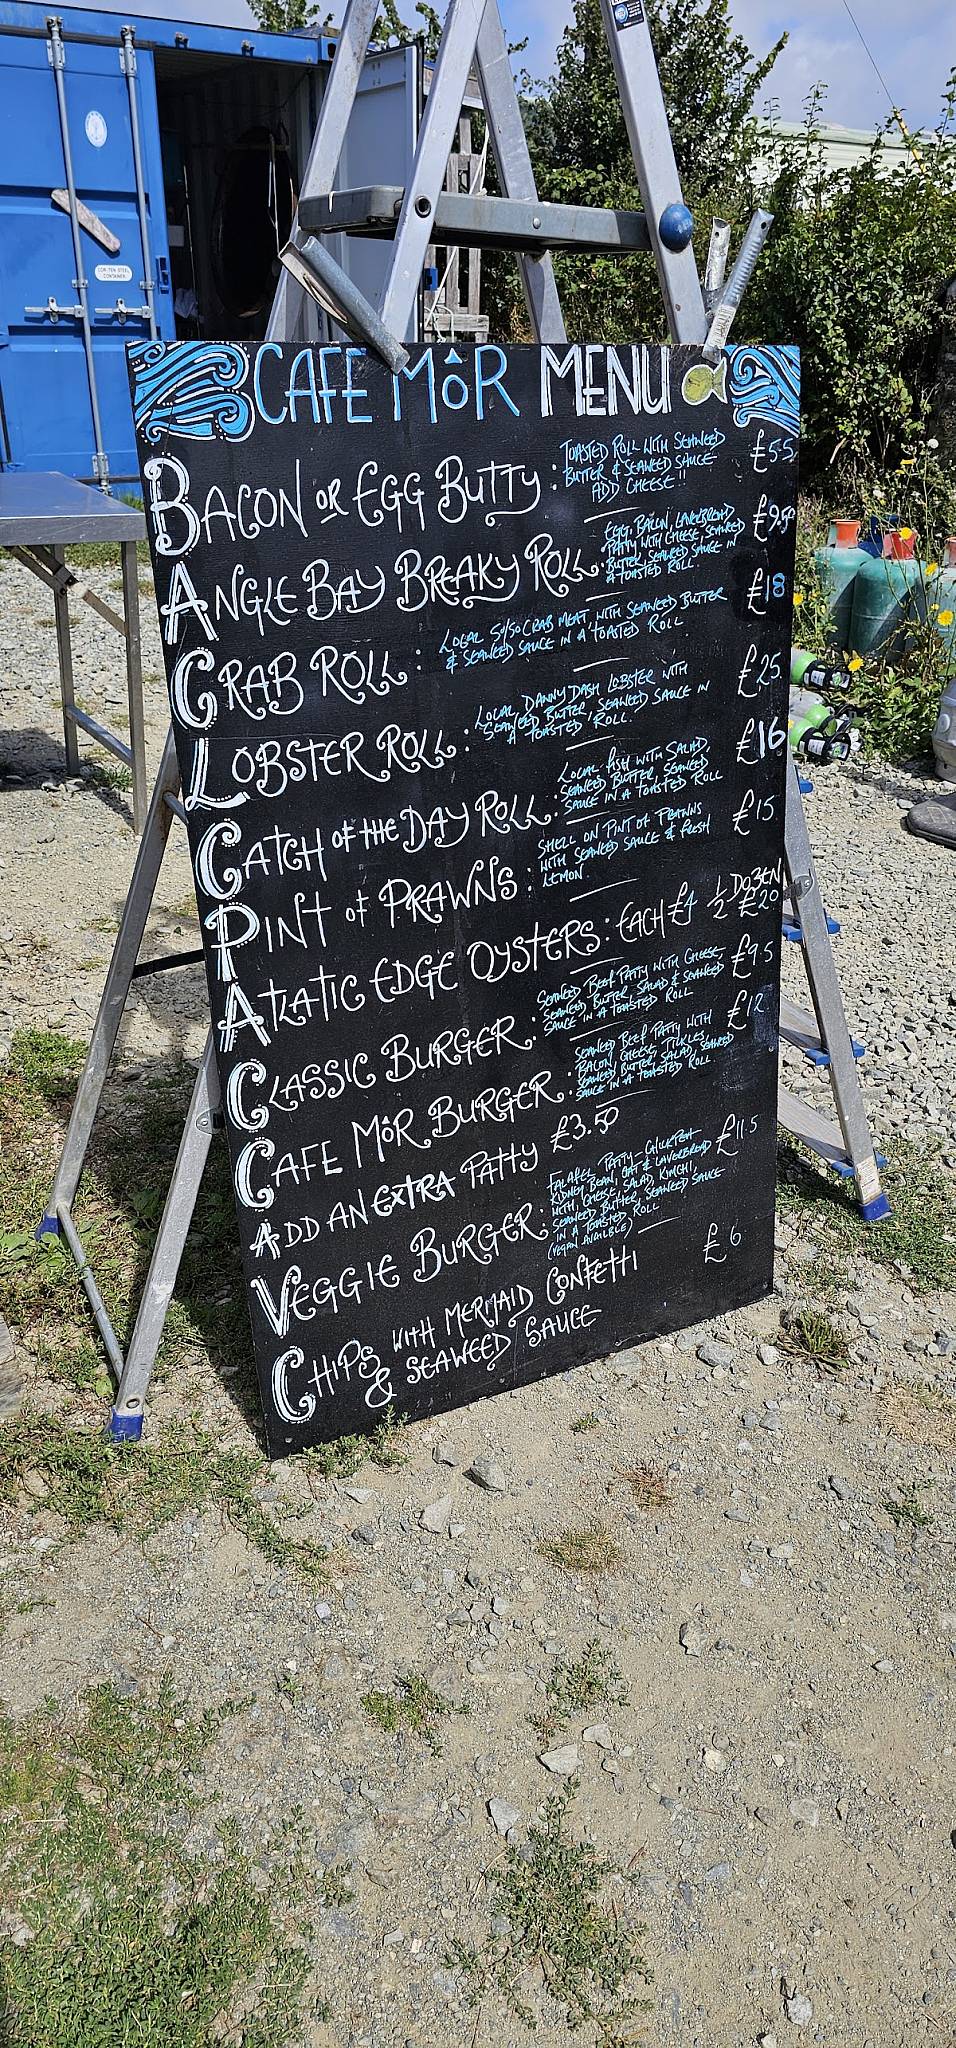 COR-TEN STEEL
CONTAINER
CAFE MÔR MENU
BACON OR EGG BUTTY :
TOASTED ROLL WITH SEAWEED
BUTTER & SEAWEED SAUCE
ADD CHEESE!!
£5.5
ANGLE BAY BREAKY ROLL:
EGG, BACON, LAVERBREAD
PATTY WITH CHEESE, SEAWEED
BUTTER, SEAWEED SAUCE IN
A TOASTED ROLL
£9.50
CRAB ROLL :
LOCAL 50/50 CRAB MEAT WITH SEAWEED BUTTER
& SEAWEED SAUCE IN A TOASTED ROLL
£18
LOBSTER ROLL :
LOCAL DANNY DASH LOBSTER WITH
SEAWEED BUTTER, SEAWEED SAUCE IN
A TOASTED ROLL.
£25
CATCH OF THE DAY ROLL :
LOCAL FISH WITH SALAD,
SEAWEED BUTTER, SEAWEED
SAUCE IN A TOASTED ROLL
£16
PINT OF PRAWNS :
SHELL ON PINT OF PRAWNS
WITH SEAWEED SAUCE & FRESH
LEMON.
£15
ATLATIC EDGE OYSTERS : EACH £4 ½ DOZEN £20
CLASSIC BURGER :
SEAWEED BEEF PATTY WITH CHEESE,
SEAWEED BUTTER, SALAD & SEAWEED
SAUCE IN A TOASTED ROLL
£9.5
CAFE MÔR BURGER :
SEAWEED BEEF PATTY WITH
BACON, CHEESE, PICKLES,
SEAWEED BUTTER, SALAD, SEAWEED
SAUCE IN A TOASTED ROLL
£12
ADD AN EXTRA PATTY £3.50
VEGGIE BURGER :
FALAFEL PATTY - CHICKPEA
KIDNEY BEAN, OAT & LAVERBREAD
WITH CHEESE, SALAD, KIMCHI,
SEAWEED BUTTER, SEAWEED SAUCE
IN A TOASTED ROLL
(VEGAN AVAILBLE)
£11.5
CHIPS WITH MERMAID CONFETTI
& SEAWEED SAUCE
£6